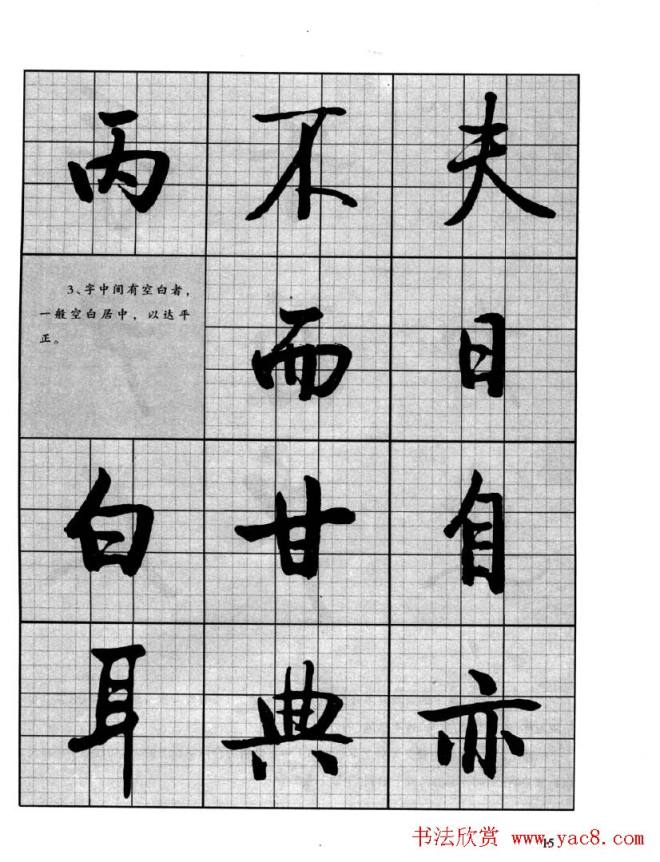 丙 不 夫
3、字中间有空白者，
一般空白居中，以达平
正。
而 日
白 甘 自
耳 典 亦
15
书法欣赏 www.yac8.com